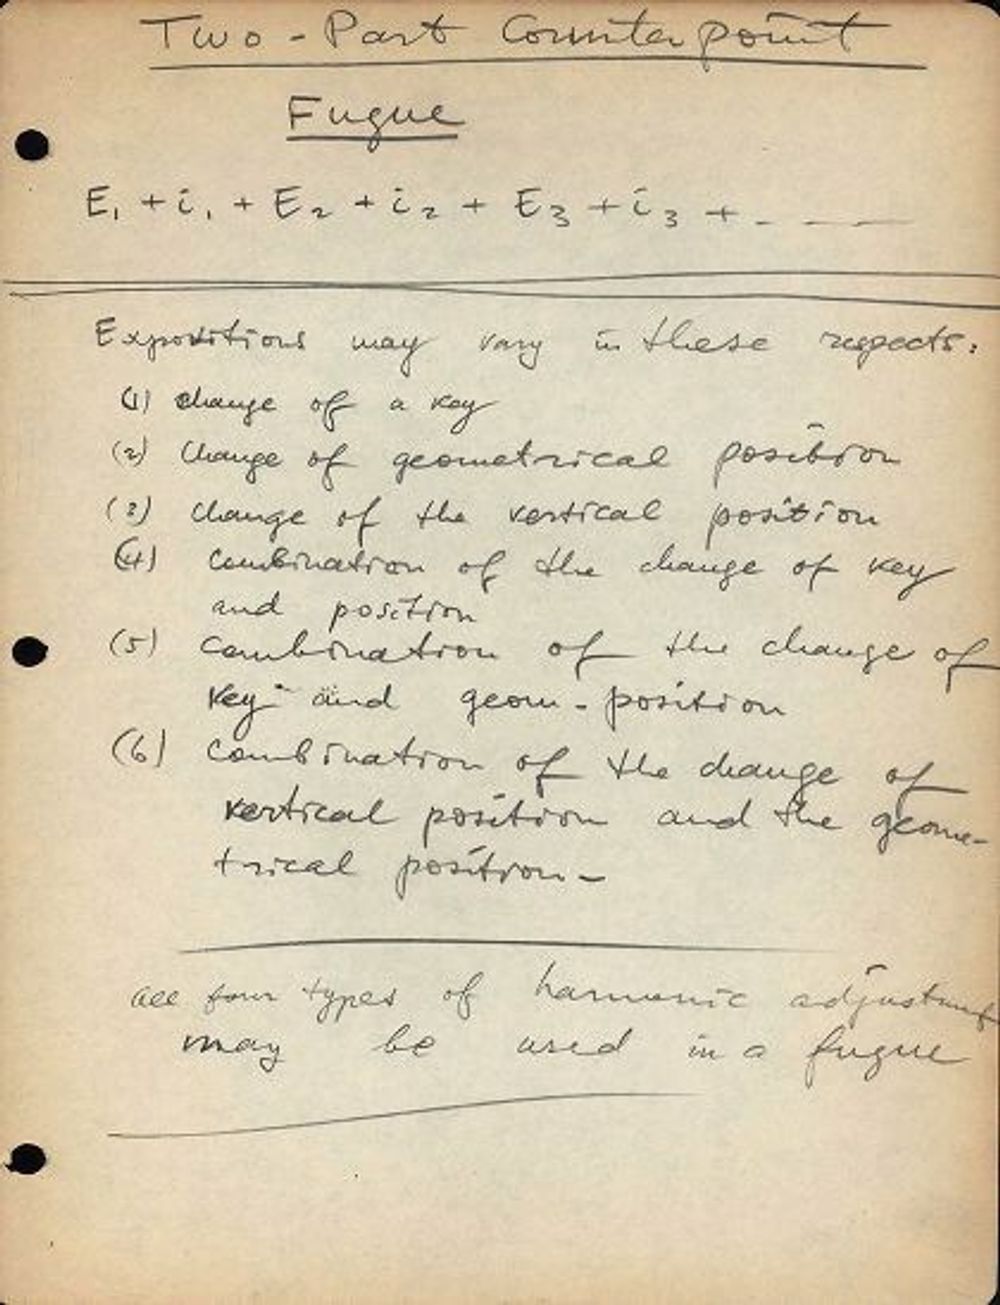 Two-Part Counterpoint
Fugue
E₁ + i₁ + E₂ + i₂ + E₃ + i₃ + - — —
Expositions may vary in these respects:
(1) change of a key
(2) change of geometrical position
(3) change of the vertical position
(4) combination of the change of key
and position
(5) combination of the change of
key and geom. position
(6) combination of the change of
vertical position and the geome-
trical position-
all four types of harmonic adjustment
may be used in a fugue